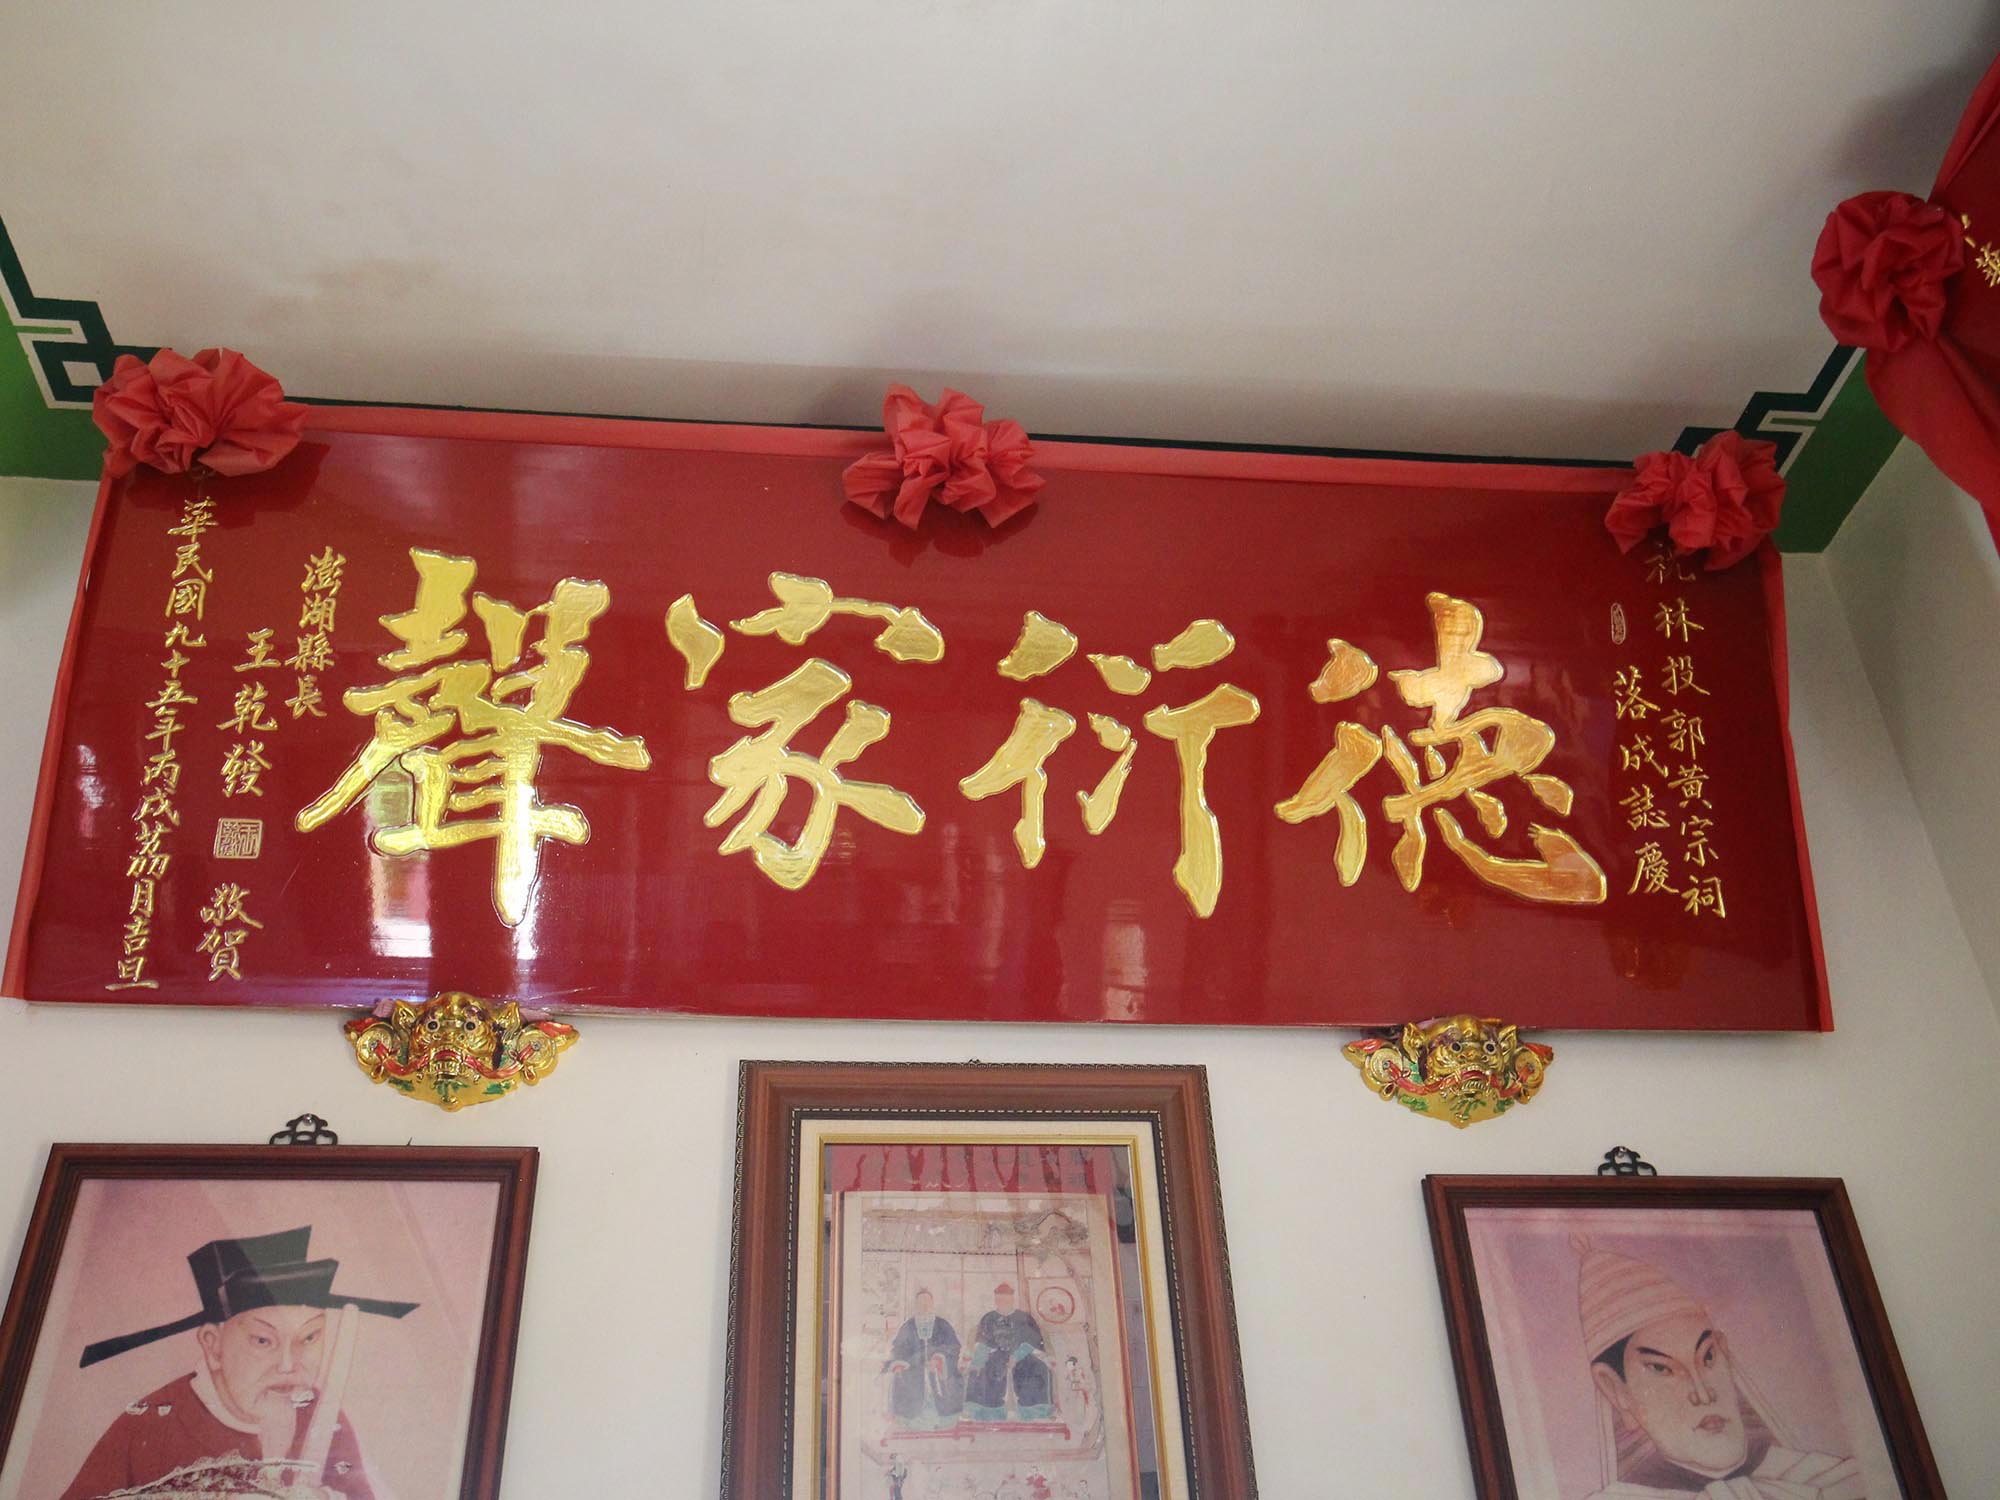 祝林投郭黃宗祠
落成誌慶
德衍家聲
澎湖縣長
王乾發 敬賀
華民國九十五年丙戌荔月吉旦